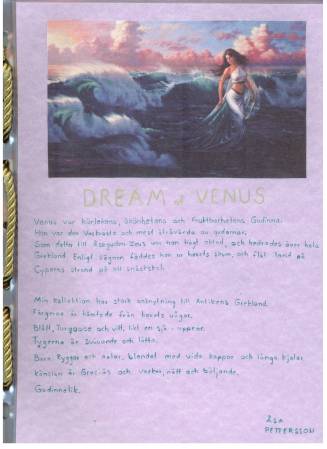 DREAM of VENUS
Venus var kärlekens, skönhetens och fruktbarhetens Gudinna.
Hon var den vackraste och mest åtråvärda av gudarna.
Som dotter till åskguden Zeus var hon högt aktad, och hedrades över hela
Grekland. Enligt sägnen föddes hon ur havets skum, och flöt iland på
Cyperns strand på ett snäckskal.
Min kollektion har stark anknytning till Antikens Grekland.
Färgerna är hämtade från havets vågor.
Blått, Turquose och vitt, likt en sjö-
Tygerna är svävande och lätta.
Bara Ryggar och axlar, blandat med vida kappor och långa kjolar.
Känslan är Graciös och vacker, nätt och böljande.
Gudinnelik.
PETTERSSON